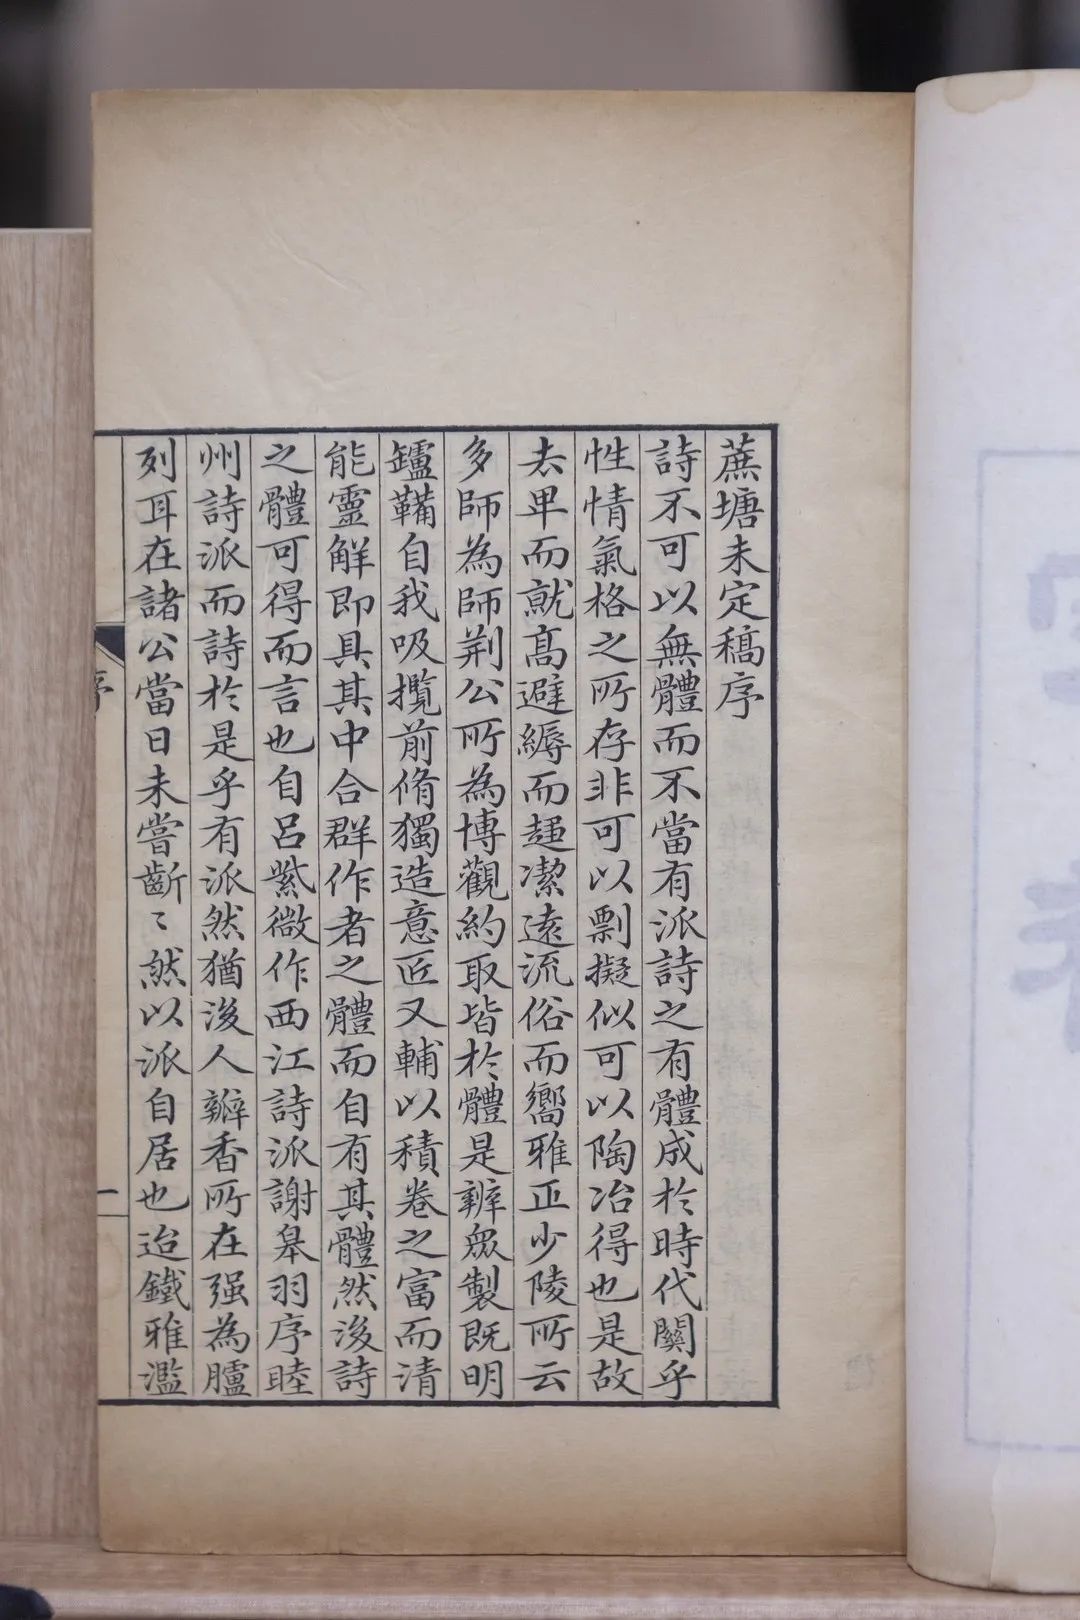 蔗塘未定稿序
詩不可以無體而不當有派詩之有體成於時代關乎
性情氣格之所存非可以剽擬似可以陶冶得也是故
去卑而就高避縟而趨潔遠流俗而嚮雅正少陵所云
多師為師荆公所為博觀約取皆於體是辨眾製既明
鑪鞴自我吸攬前脩獨造意匠又輔以積卷之富而清
能靈解即具其中合群作者之體而自有其體然後詩
之體可得而言也自呂紫微作西江詩派謝皋羽序睦
州詩派而詩於是乎有派然猶後人瓣香所在强為臚
列耳在諸公當日未嘗齗〻然以派自居也迨鐵雅濫
序
一